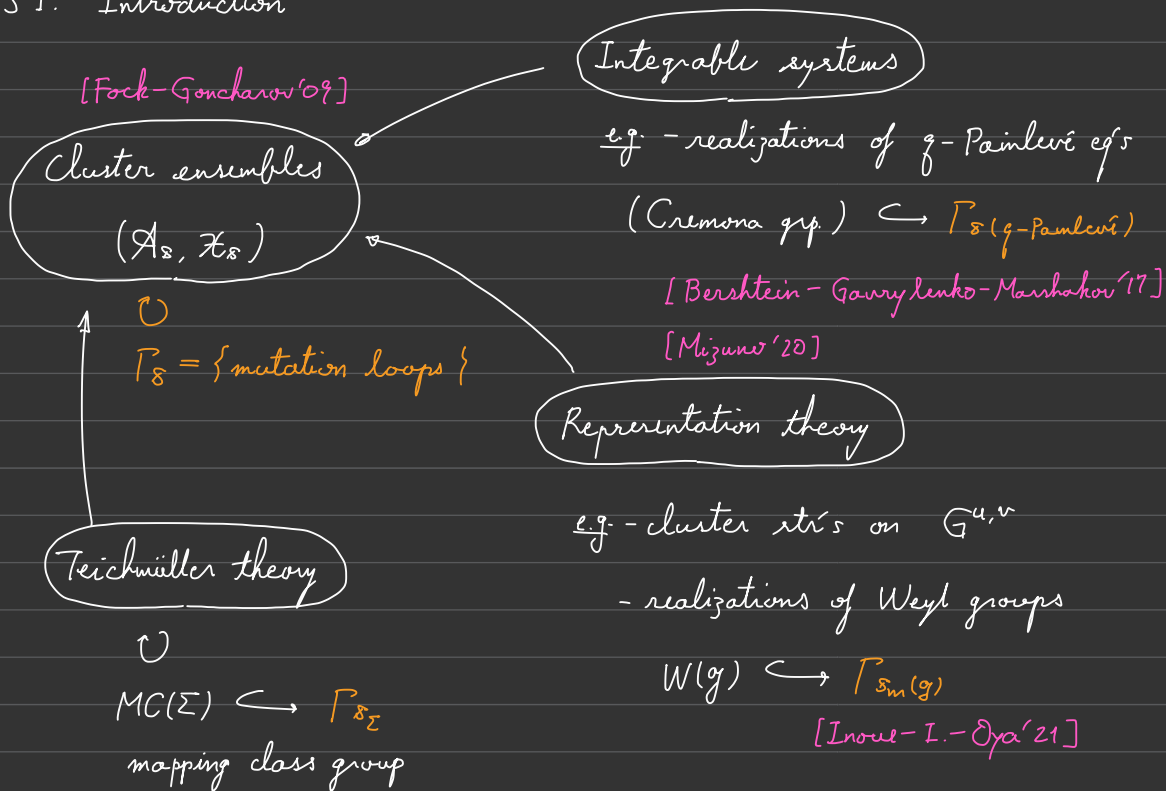 §1. Introduction
[Fock-Goncharov'09]
Cluster ensembles
(𝒜_𝓈, 𝒳_𝓈)
↻
Γ_𝓈 = {mutation loops}
Teichmüller theory
↻
MC(Σ) ↪ Γ_{𝓈_Σ}
mapping class group
Integrable systems
e.g. - realizations of q-Painlevé eq's
(Cremona grp.) ↪ Γ_{𝓈(q-Painlevé)}
[Bershtein-Gavrylenko-Marshakov'17]
[Mizuno'20]
Representation theory
e.g. - cluster str's on G^{u,v}
- realizations of Weyl groups
W(g) ↪ Γ_{𝓈_m(g)}
[Inoue-I.-Oya'21]